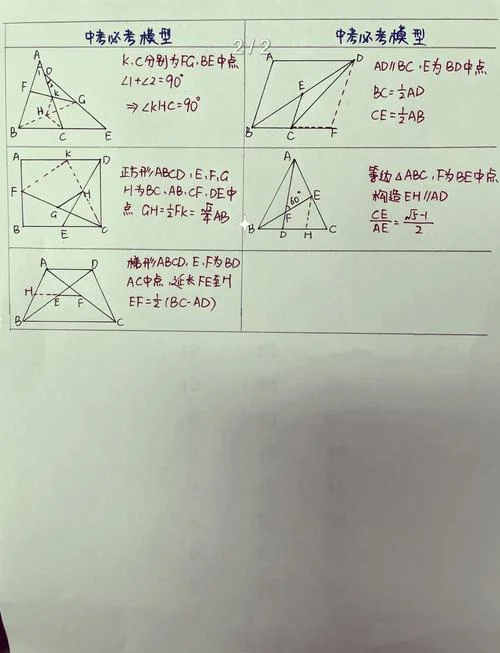 中考必考模型
2/2
中考必考模型
K、C分别为FG、BE中点
∠1+∠2=90°
⇒∠KHC=90°
A
D
F
K
G
H
B
C
E
A
D
E
B
C
F
AD∥BC,E为BD中点
BC=½AD
CE=½AB
A
K
D
F
H
G
B
E
C
正方形ABCD,E、F、G
H为BC、AB、CF、DE中
点 GH=½FK=√2/4AB
A
60°
E
F
B
D
H
C
等边△ABC,F为BE中点
构造EH∥AD
CE/AE=√5-1/2
A
D
H
E
F
B
C
梯形ABCD,E、F为BD
AC中点,延长FE至H
EF=½(BC-AD)